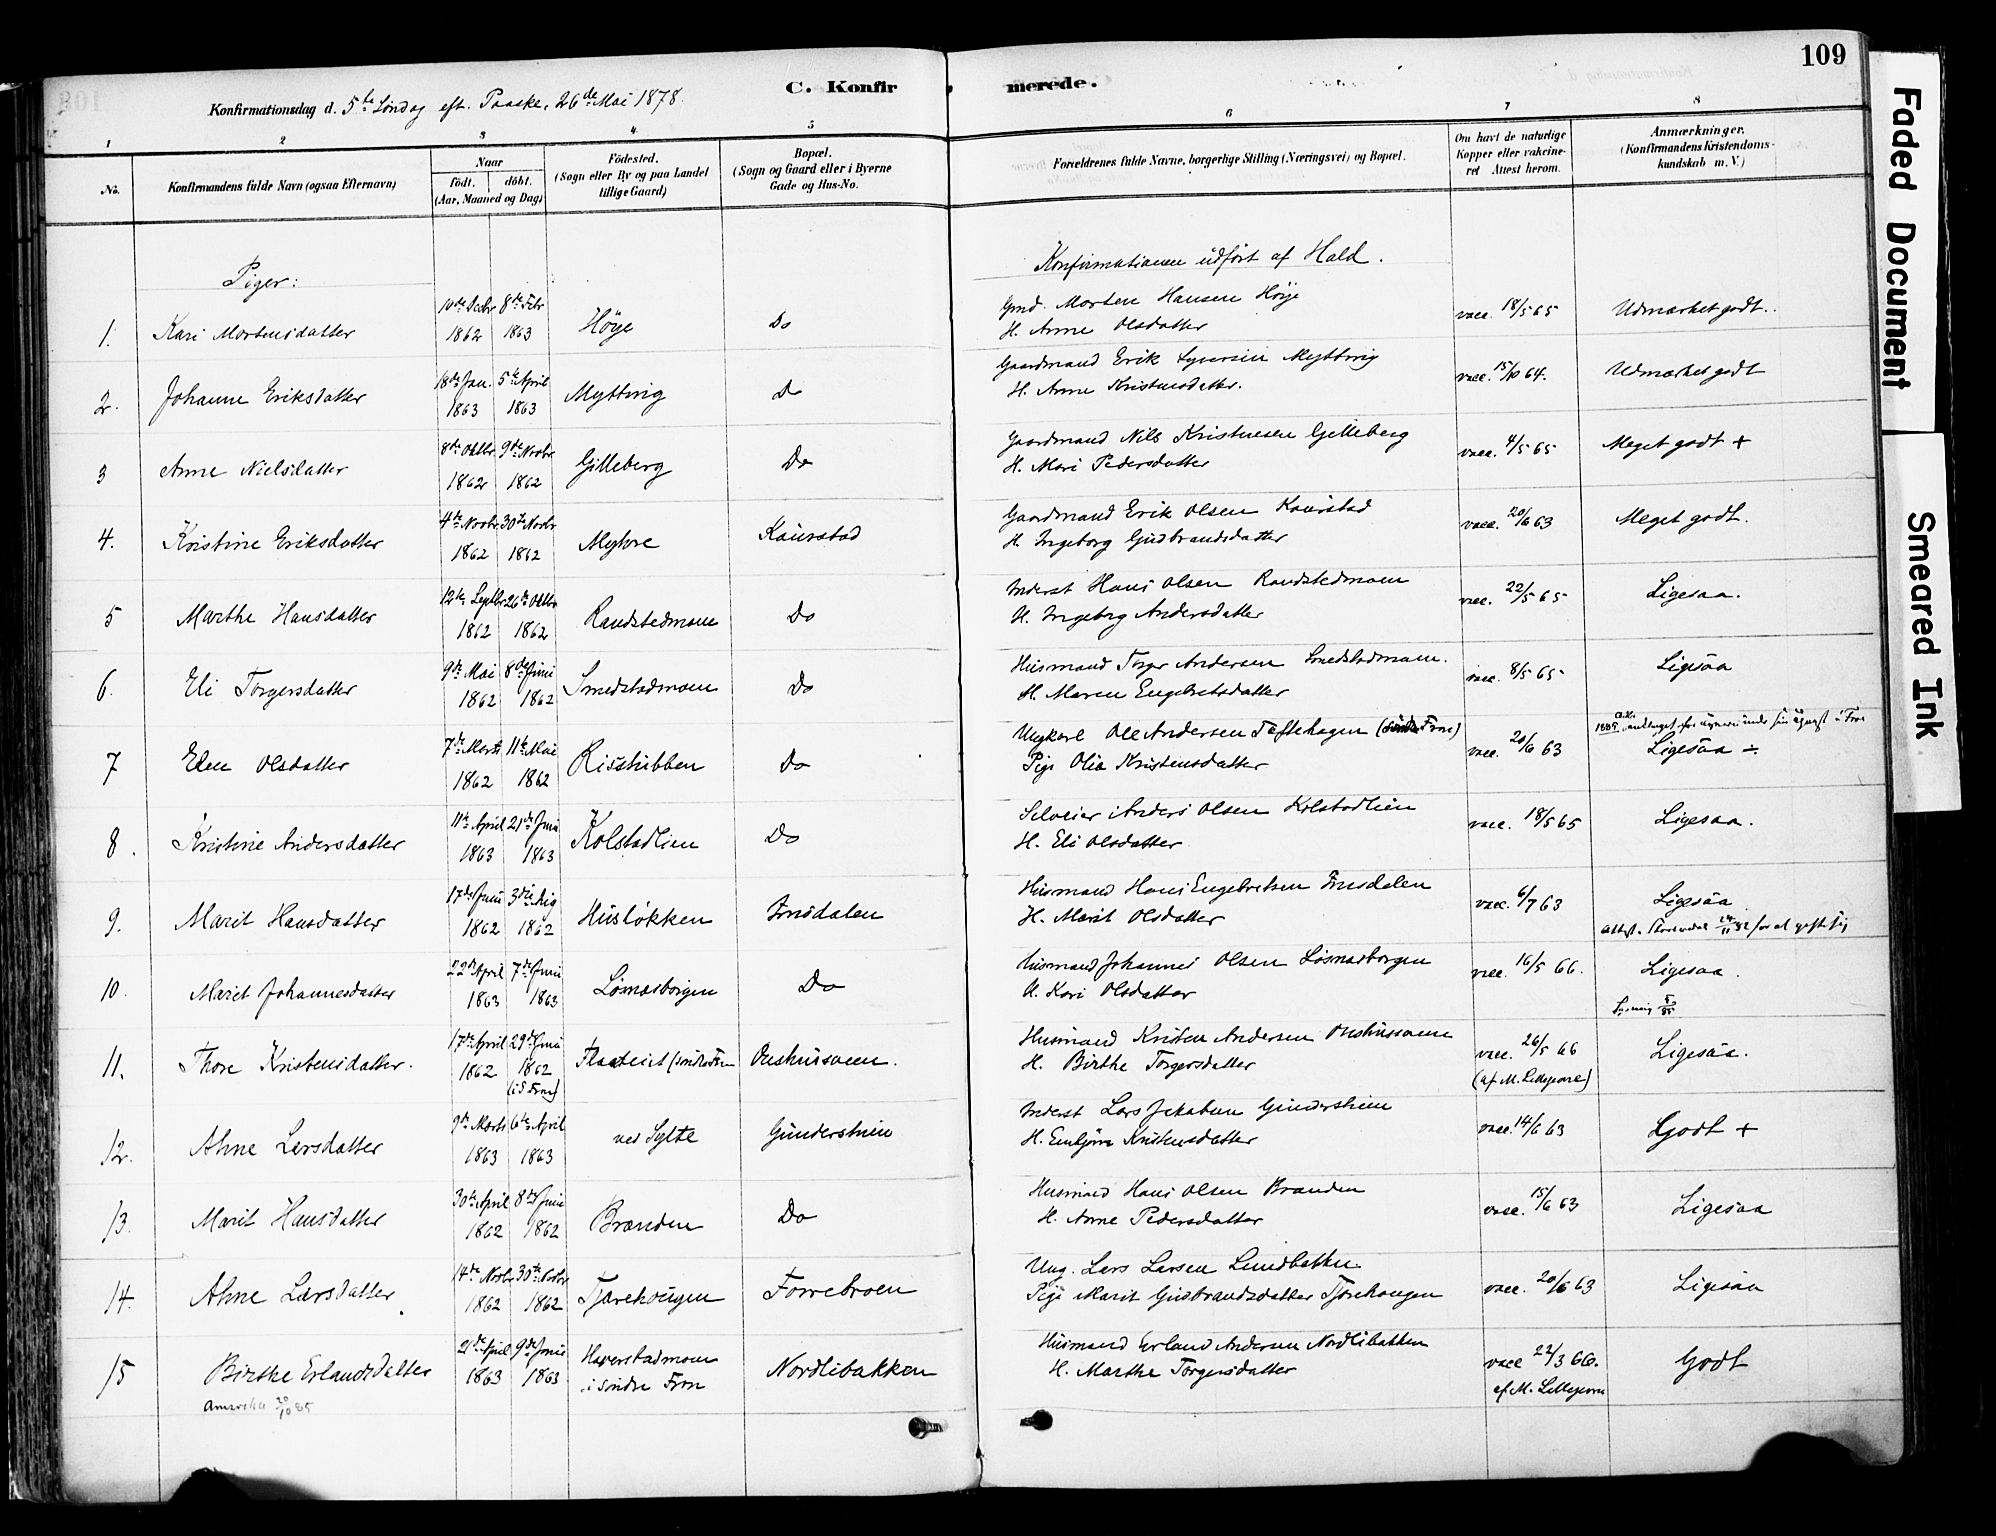 109
C. Konfirmerede.
Konfirmationsdag d. 5te Søndag eft. Paaske, 26de Mai 1878.
1 2 3 4 5 6 7 8
No.
Konfirmandens fulde Navn (ogsaa Efternavn)
Naar
födt. döbt.
(Aar, Maaned og Dag)
Födested.
(Sogn eller By og paa Landet
tillige Gaard)
Bopæl.
(Sogn og Gaard eller i Byerne
Gade og Hus-No.
Forældrenes fulde Navne, borgerlige Stilling (Næringsvei) og Bopæl.
Om havt de naturlige
Kopper eller vakcine-
ret Attest herom.
Anmærkninger.
(Konfirmandens Kristendoms-
kundskab m. V.)
Faded Document
Smeared Ink
Piger:
Konfirmationen udført af Hald.
1. Kari Mortensdatter 10de Decbr 1862 8de Febr 1863 Höye Do
Gmd. Morten Hansen Höye
H. Anne Olsdatter
vacc. 18/5 65 Udmærket godt.
2. Johanne Eriksdatter 18de Jan. 1863 5te April 1863 Mytting Do
Gaardmand Erik Syversen Mytting
H. Anne Kristensdatter.
vacc. 15/10 64. Udmærket godt
3 Anne Nielsdatter 8de Oktbr. 1862 9de Novbr 1862 Gilleberg Do
Gaardmand Nils Kristensen Gilleberg
H. Mari Pedersdatter
vacc. 4/5 65 Meget godt +
4. Kristine Eriksdatter 4de Novbr. 1862 30te Novbr 1862 Myhre Kaurstad
Gaardmand Erik Olsen Kaurstad
H. Ingeborg Gudbrandsdatter
vacc. 20/6 63 Meget godt.
5 Marthe Hansdatter 12te Septbr 1862 26de Oktbr 1862 Randstedmoen Do
Inderst Hans Olsen Randstedmoen
H. Ingeborg Andersdatter
vacc. 22/5 65 Ligesaa.
6. Eli Torgersdatter 9de Mai 1862 8de Juni 1862 Smedstadmoen Do
Husmand Torger Andersen Smedstadmoen.
H. Maren Engebretsdatter
vacc. 8/5 65 Ligesaa
7 Elen Olsdatter 7de Marts 1862 11te Mai 1862 Risstubben Do
Ungkarl Ole Andersen Toftehagen (Søndre Fron)
Pige Olia Kristensdatter
vacc. 20/6 63
Ligesaa ÷
8. Kristine Andersdatter 11te April 1863 21de Juni 1863 Kolstadlien Do
Selveier Anders Olsen Kolstadlien
H. Eli Olsdatter
vacc. 18/5 65 Ligesaa.
9. Marit Hansdatter 17de Juni 1862 3die Aug 1862 Husløkken Frusdalen
Husmand Hans Engebretsen Frusdalen
H. Marit Olsdatter
vacc. 6/7 63 Ligesaa
for at gifte sig
10. Marit Johannesdatter 22de April 1863 7de Juni 1863 Løsnasborgen Do
Husmand Johannes Olsen Løsnasborgen
H. Kari Olsdatter
vacc. 16/5 66. Ligesaa.
Lysning 5/85
11. Thore Kristensdatter. 17de April 1862 29de Juni 1862 (i S. Fron) (søndre Fron Onshusvenn.
Husmand Kristen Andersen Onshusvenn
H. Birthe Torgersdatter
vacc. 26/5 66 Ligesaa.
12. Ahne Larsdatter 9de Marts 1863 6te April 1863 ved Sylte Gunderstuen
Inderst Lars Jakobsen Gunderstuen
H. Embjør Kristensdatter
vacc. 14/6 63 Godt +
13. Marit Hansdatter 30te April 1862 8de Juni 1862 Brænden Do
Husmand Hans Olsen Brænden
H. Anne Pedersdatter
vacc. 15/6 63 Ligesaa
14. Ahne Larsdatter 14de Novbr 1862 30te Novbr 1862 Tjærehougen Forrebroen
Ung. Lars Larsen Lundbakken
Pige Marit Gudbrandsdatter Tjærehougen
vacc. 20/6 63 Ligesaa
15 Birthe Erlandsdatter 21de April 1863 9de Juni 1863 Haverstadmoen i søndre Fron Nordlibakken
Amerika 20/10 85
Husmand Erland Andersen Nordlibakken
H. Marthe Torgersdatter
vacc 22/3 66. Godt